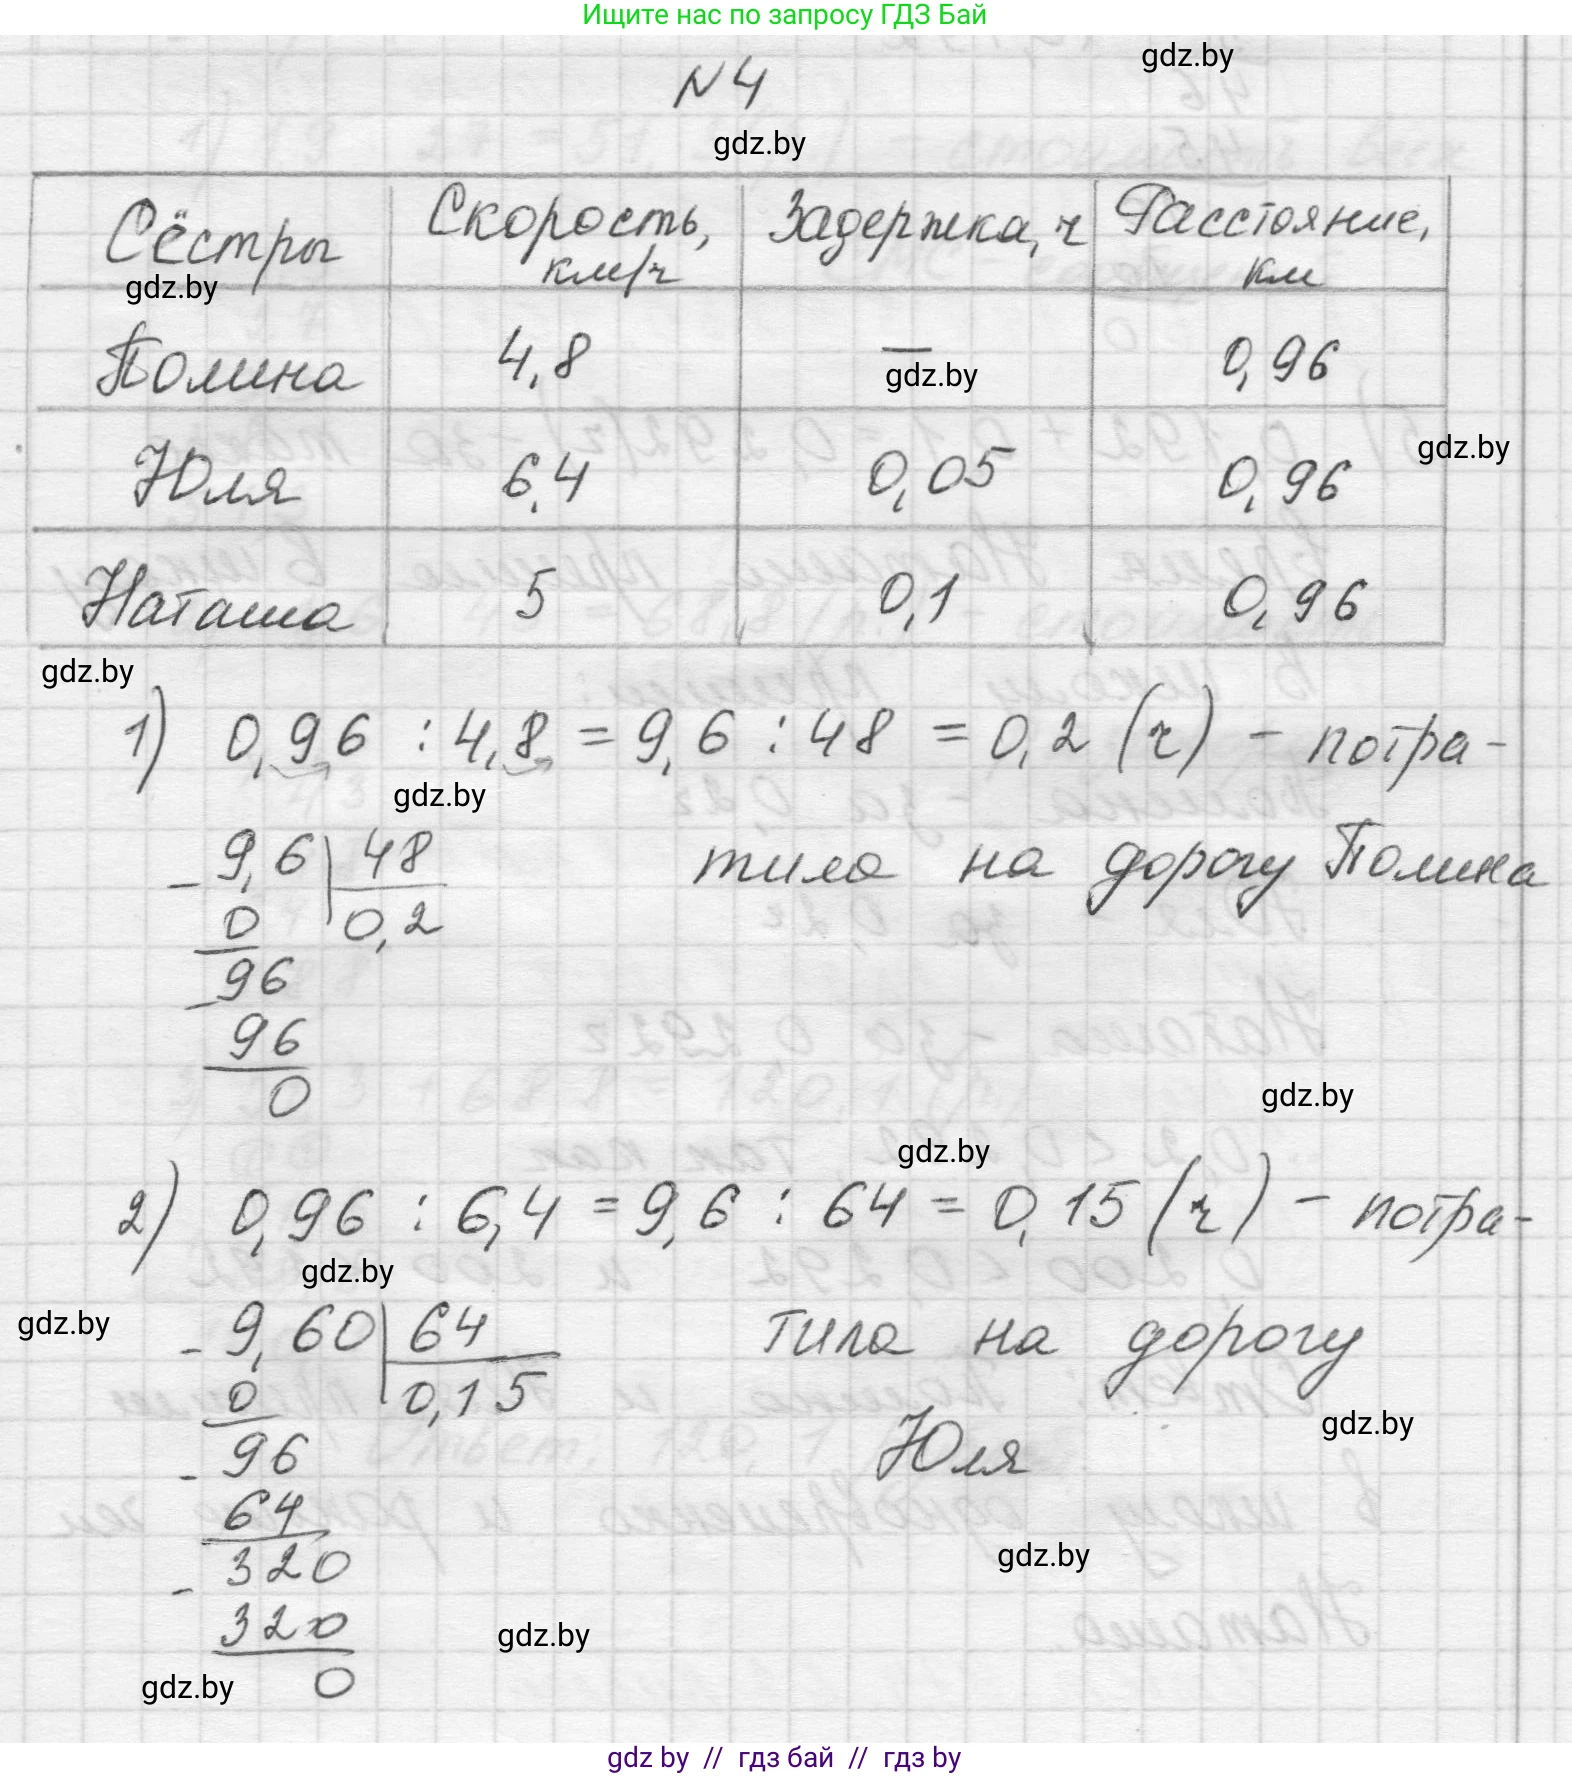 Ищите нас по запросу ГДЗ Бай
gdz.by
N 4
gdz.by
Сёстры Скорость, км/ч Задержка, ч Расстояние, км
gdz.by
Полина 4,8 — 0,96
gdz.by
gdz.by
Юля 6,4 0,05 0,96
Наташа 5 0,1 0,96
gdz.by
1) 0,96 : 4,8 = 9,6 : 48 = 0,2 (ч) - потра-
gdz.by
тила на дорогу Полина
- 9,6 | 48
0 0,2
- 96
96
0
gdz.by
gdz.by
2) 0,96 : 6,4 = 9,6 : 64 = 0,15 (ч) - потра-
gdz.by
gdz.by
тила на дорогу
Юля
- 9,60 | 64
0 0,15
gdz.by
- 96
64
gdz.by
- 320
320
gdz.by
0
gdz.by
gdz by // гдз бай // гдз by